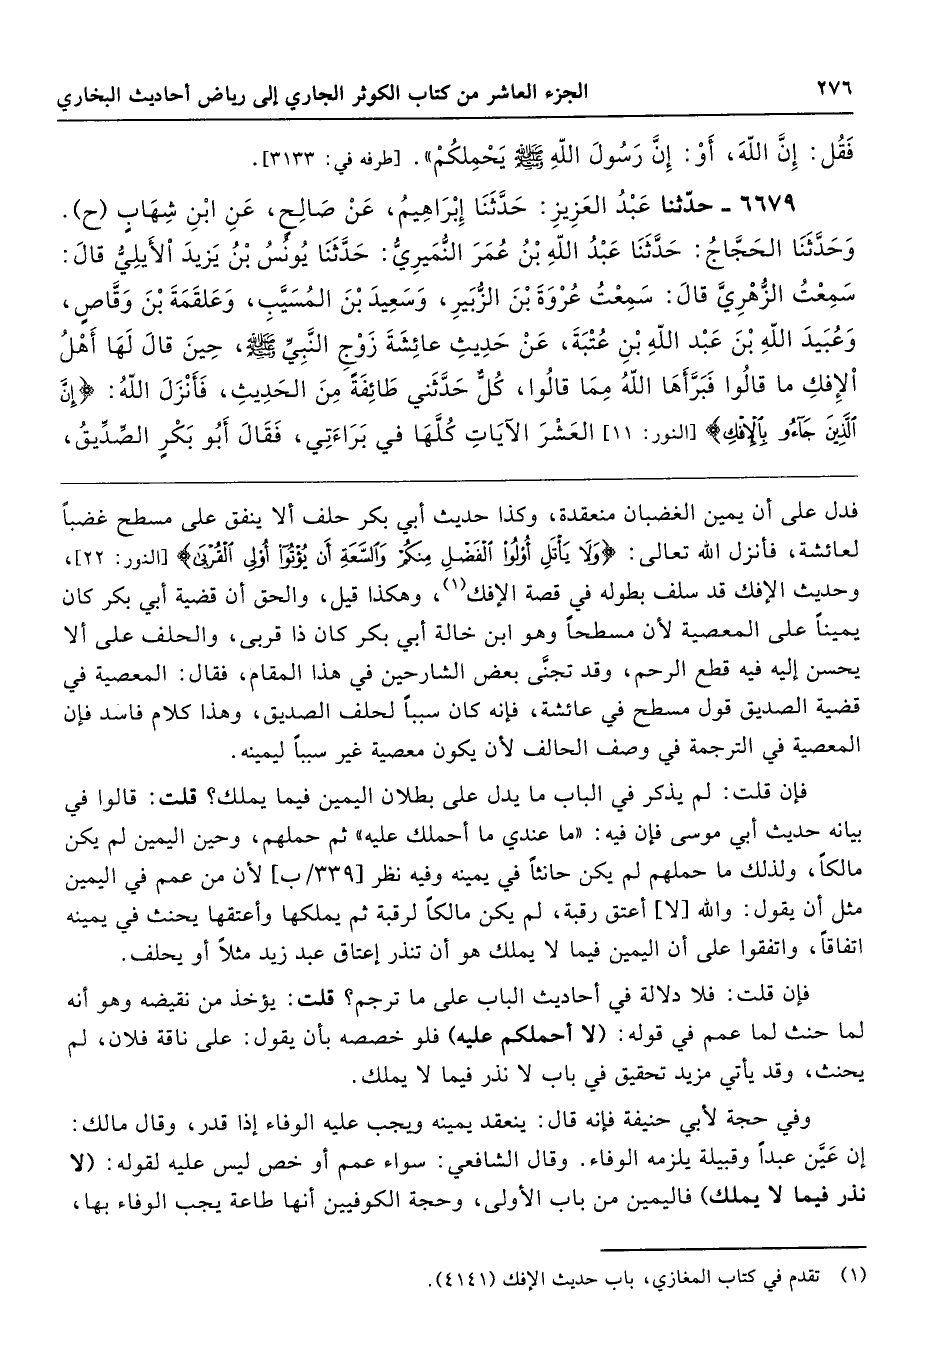 ٢٧٦ الجزء العاشر من كتاب الكوثر الجاري إلى رياض أحاديث البخاري
فَقُل: إِنَّ اللّهَ، أَوْ: إِنَّ رَسُولَ اللّهِ ﷺ يَحْمِلُكُمْ». [طرفه في: ٣١٣٣].
٦٦٧٩ - حدّثنا عَبْدُ العَزِيزِ: حَدَّثَنَا إِبْرَاهِيمُ، عَنْ صَالِحٍ، عَنِ ابْنِ شِهَابٍ (ح).
وَحَدَّثَنَا الحَجَّاجُ: حَدَّثَنَا عَبْدُ اللّهِ بْنُ عُمَرَ النُّمَيرِيُّ: حَدَّثَنَا يُونُسُ بْنُ يَزِيدَ الأَيلِيُّ قالَ:
سَمِعْتُ الزُّهْرِيَّ قالَ: سَمِعْتُ عُرْوَةَ بْنَ الزُّبَيرِ، وَسَعِيدَ بْنَ المُسَيَّبِ، وَعَلقَمَةَ بْنَ وَقَّاصٍ،
وَعُبَيدَ اللّهِ بْنَ عَبْدِ اللّهِ بْنِ عُتْبَةَ، عَنْ حَدِيثِ عائِشَةَ زَوْجِ النَّبِيِّ ﷺ، حِينَ قالَ لَهَا أَهْلُ
الإِفكِ ما قالُوا فَبَرَّأَهَا اللّهُ مِمَا قالُوا، كُلٌّ حَدَّثَني طَائِفَةً مِنَ الحَدِيثِ، فَأَنْزَلَ اللّهُ: ﴿إِنَّ
ٱلَّذِينَ جَآءُو بِٱلْإِفْكِ﴾ [النور: ١١] العَشْرَ الآيَاتِ كُلَّهَا في بَرَاءَتِي، فَقَالَ أَبُو بَكْرٍ الصِّدِّيقُ،
فدل على أن يمين الغضبان منعقدة، وكذا حديث أبي بكر حلف ألا ينفق على مسطح غضباً
لعائشة، فأنزل الله تعالى: ﴿وَلَا يَأْتَلِ أُوْلُواْ ٱلْفَضْلِ مِنكُمْ وَٱلسَّعَةِ أَن يُؤْتُوٓاْ أُوْلِي ٱلْقُرْبَىٰ﴾ [النور: ٢٢]،
وحديث الإفك قد سلف بطوله في قصة الإفك(١)، وهكذا قيل، والحق أن قضية أبي بكر كان
يميناً على المعصية لأن مسطحاً وهو ابن خالة أبي بكر كان ذا قربى، والحلف على ألا
يحسن إليه فيه قطع الرحم، وقد تجنَّى بعض الشارحين في هذا المقام، فقال: المعصية في
قضية الصديق قول مسطح في عائشة، فإنه كان سبباً لحلف الصديق، وهذا كلام فاسد فإن
المعصية في الترجمة في وصف الحالف لأن يكون معصية غير سبباً ليمينه.
فإن قلت: لم يذكر في الباب ما يدل على بطلان اليمين فيما يملك؟ قلت: قالوا في
بيانه حديث أبي موسى فإن فيه: «ما عندي ما أحملك عليه» ثم حملهم، وحين اليمين لم يكن
مالكاً، ولذلك ما حملهم لم يكن حانثاً في يمينه وفيه نظر [٣٣٩/ب] لأن من عمم في اليمين
مثل أن يقول: والله [لا] أعتق رقبة، لم يكن مالكاً لرقبة ثم يملكها وأعتقها يحنث في يمينه
اتفاقاً، واتفقوا على أن اليمين فيما لا يملك هو أن تنذر إعتاق عبد زيد مثلاً أو يحلف.
فإن قلت: فلا دلالة في أحاديث الباب على ما ترجم؟ قلت: يؤخذ من نقيضه وهو أنه
لما حنث لما عمم في قوله: (لا أحملكم عليه) فلو خصصه بأن يقول: على ناقة فلان، لم
يحنث، وقد يأتي مزيد تحقيق في باب لا نذر فيما لا يملك.
وفي حجة لأبي حنيفة فإنه قال: ينعقد يمينه ويجب عليه الوفاء إذا قدر، وقال مالك:
إن عيَّن عبداً وقبيلة يلزمه الوفاء. وقال الشافعي: سواء عمم أو خص ليس عليه لقوله: (لا
نذر فيما لا يملك) فاليمين من باب الأولى، وحجة الكوفيين أنها طاعة يجب الوفاء بها،
(١) تقدم في كتاب المغازي، باب حديث الإفك (٤١٤١).